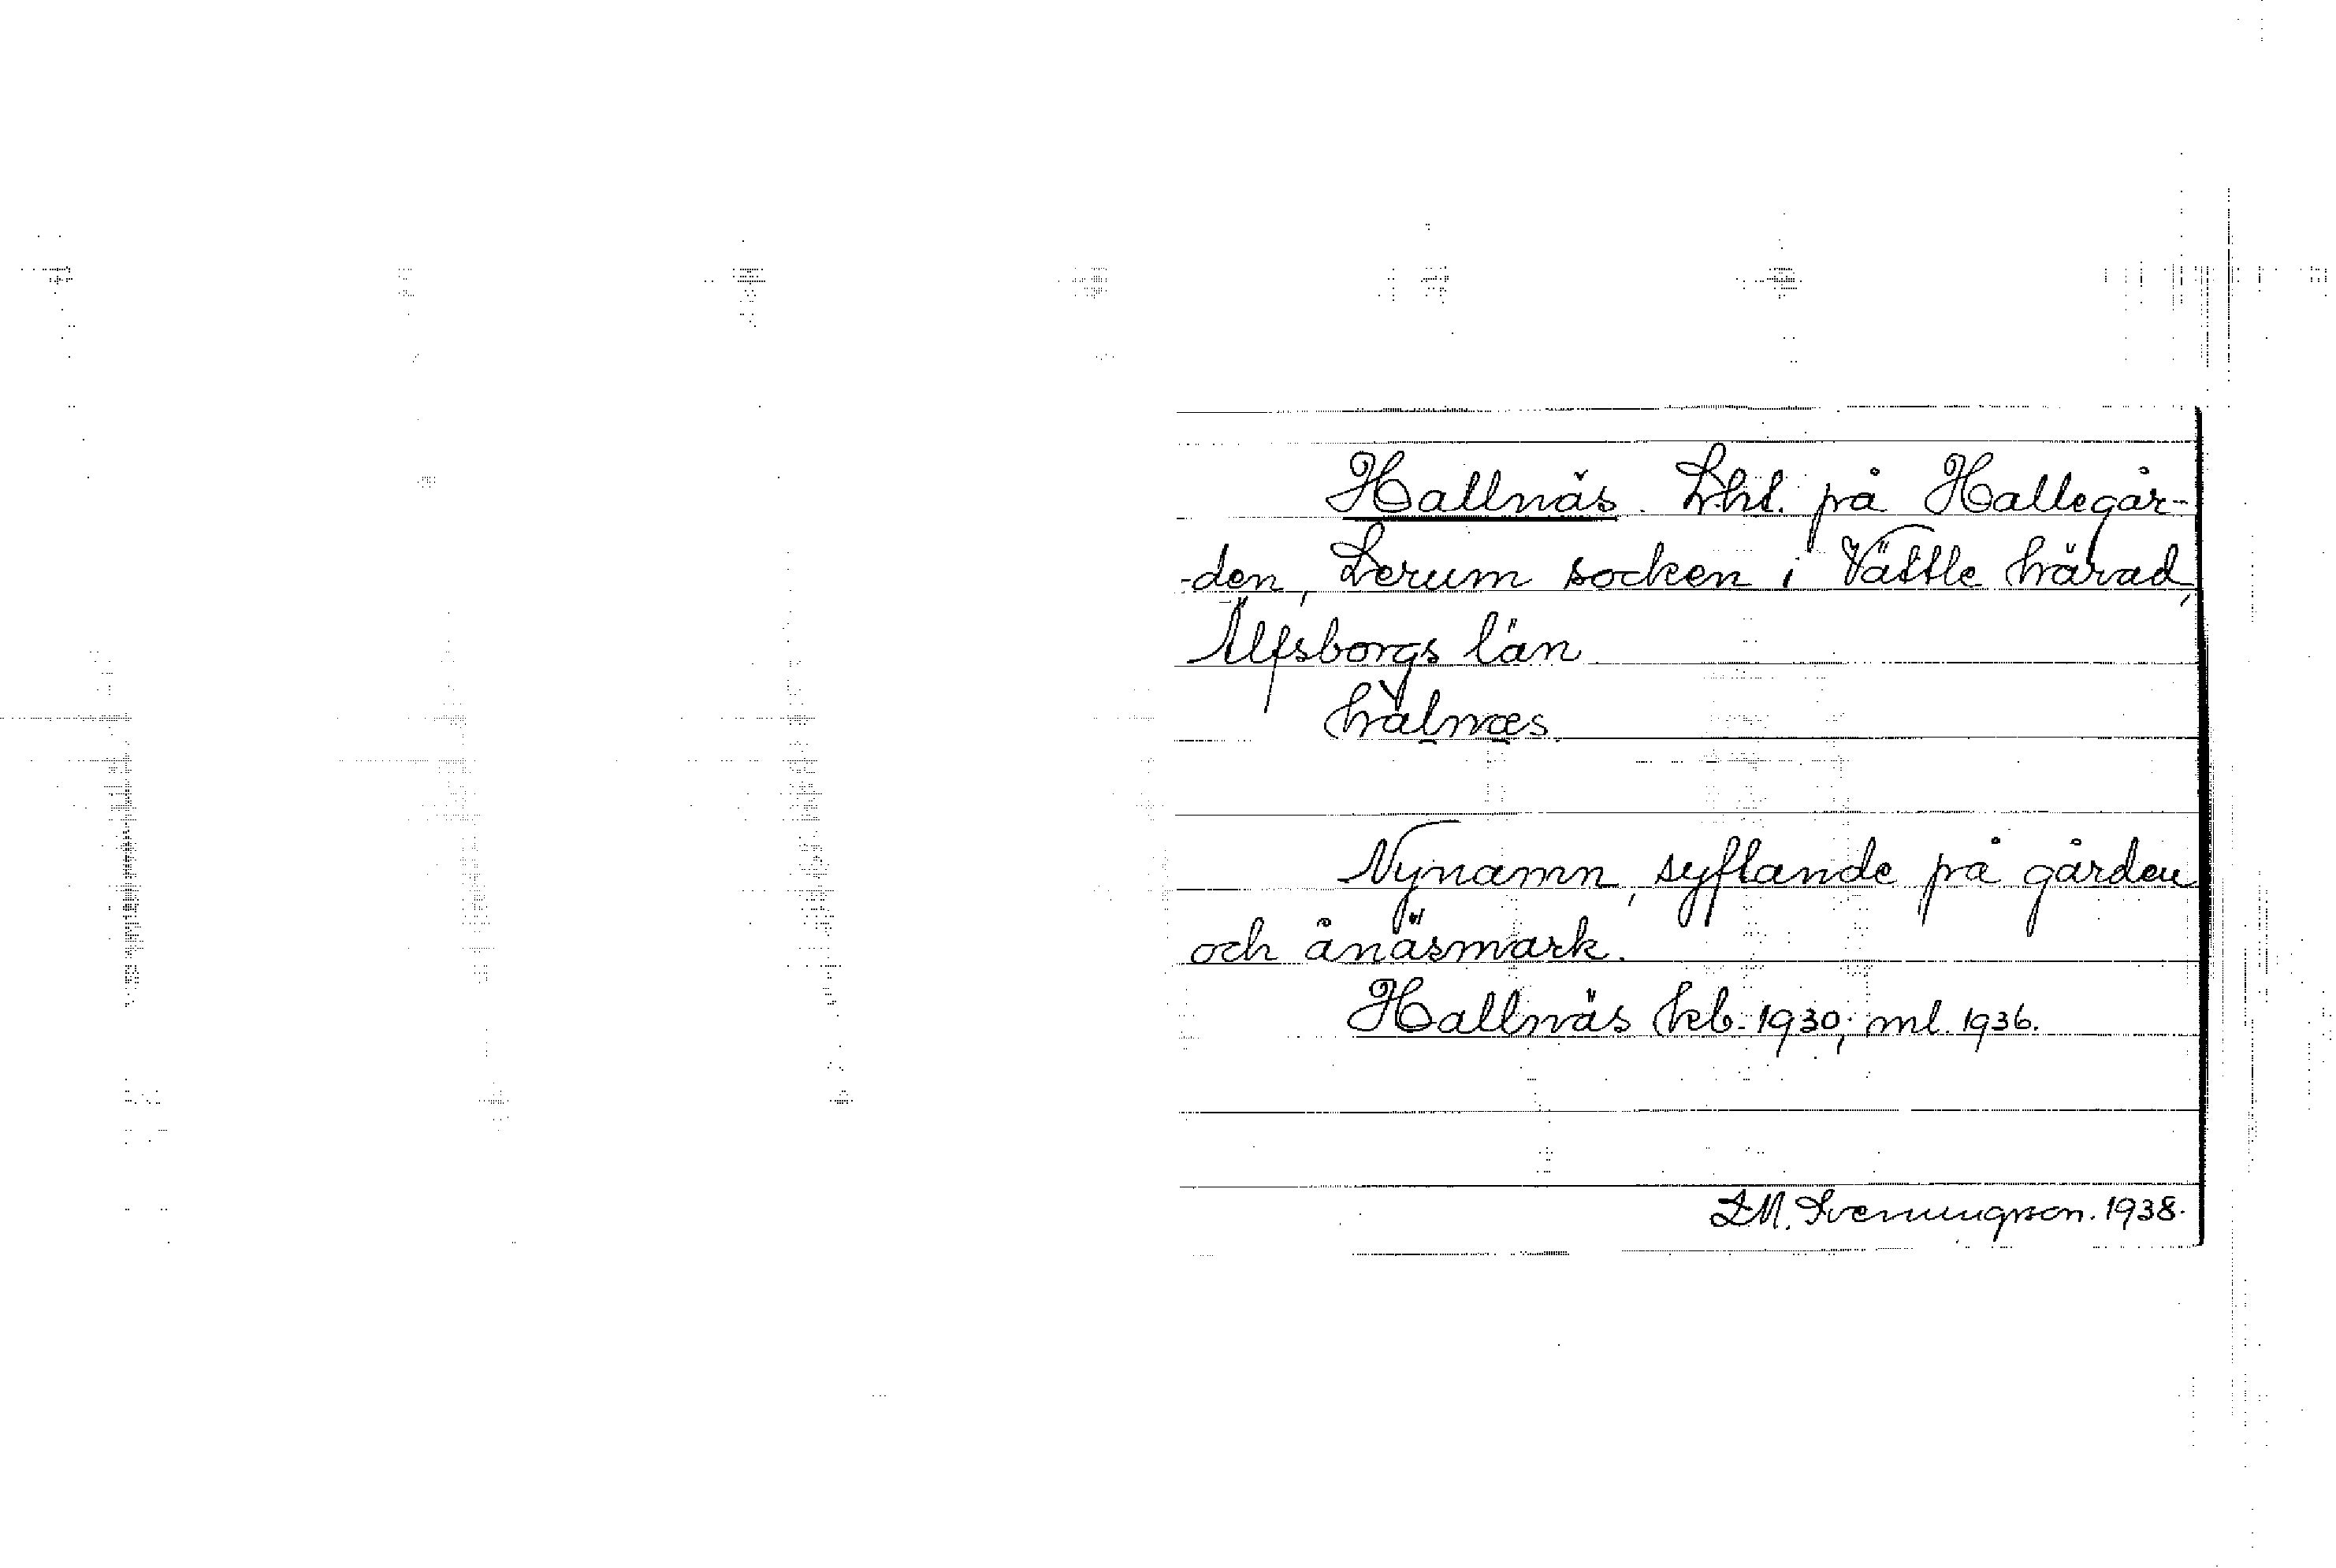 Hallnäs. Lht. på Hallegår-
-den, Lerum socken i Vättle härad,
Älfsborgs län
hàlnæs
Nynamn, syftande på gården
och ånäsmark.
Hallnäs kb. 1930; ml. 1936.
D.M. Svenungson. 1938.